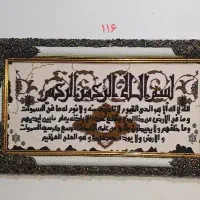 ۱۱۶
بسم الله الرحمن الرحیم
الله لا اله الا هو الحی القیوم لا تاخذه سنة و لا نوم له ما فی السموات
و ما فی الارض من ذا الذی یشفع عنده الا باذنه یعلم ما بین ایدیهم
و ما خلفهم و لا یحیطون بشیء من علمه الا بما شاء وسع کرسیه السموات
و الارض و لا یوده حفظهما و هو العلی العظیم